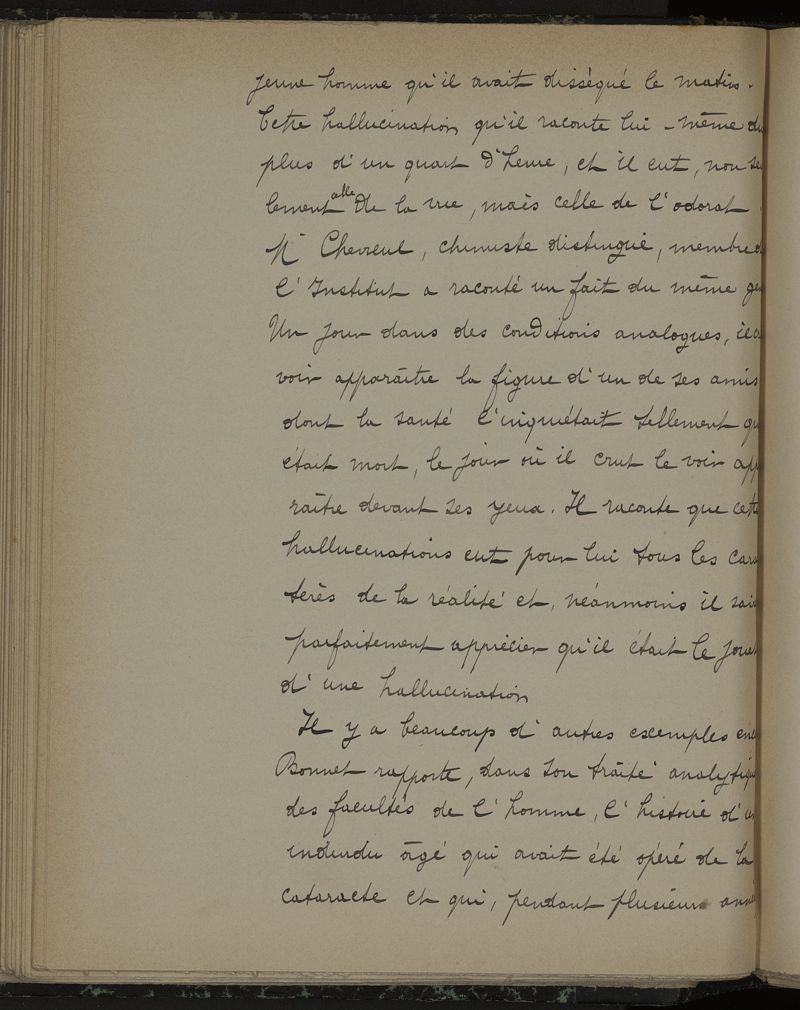 jeune homme qu'il avait disséqué le matin.
Cette hallucination qu'il raconte lui-même du
plus d'un quart d'heure, et il eut, non se
lement celle de la vue, mais celle de l'odorat.
Mr Chevreul, chimiste distingué, membre d
l'Institut a raconté un fait du même ge
Un jour dans des conditions analogues, il
voir apparaître la figure d'un de ses amis
dont la santé l'inquiétait tellement qu
était mort, le jour où il crut le voir app
raître devant ses yeux. Il raconte que cett
hallucinations eut pour lui tous les cara
terès de la réalité et, néanmoins il sai
parfaitement apprécier qu'il était le jouet
d'une hallucination
Il y a beaucoup d'autres exemples en
Bonnet rapporte, dans son traité analytiqu
des facultés de l'homme, l'histoire d'u
individu âgé qui avait été opéré de la
cataracte et qui, pendant plusieurs anné